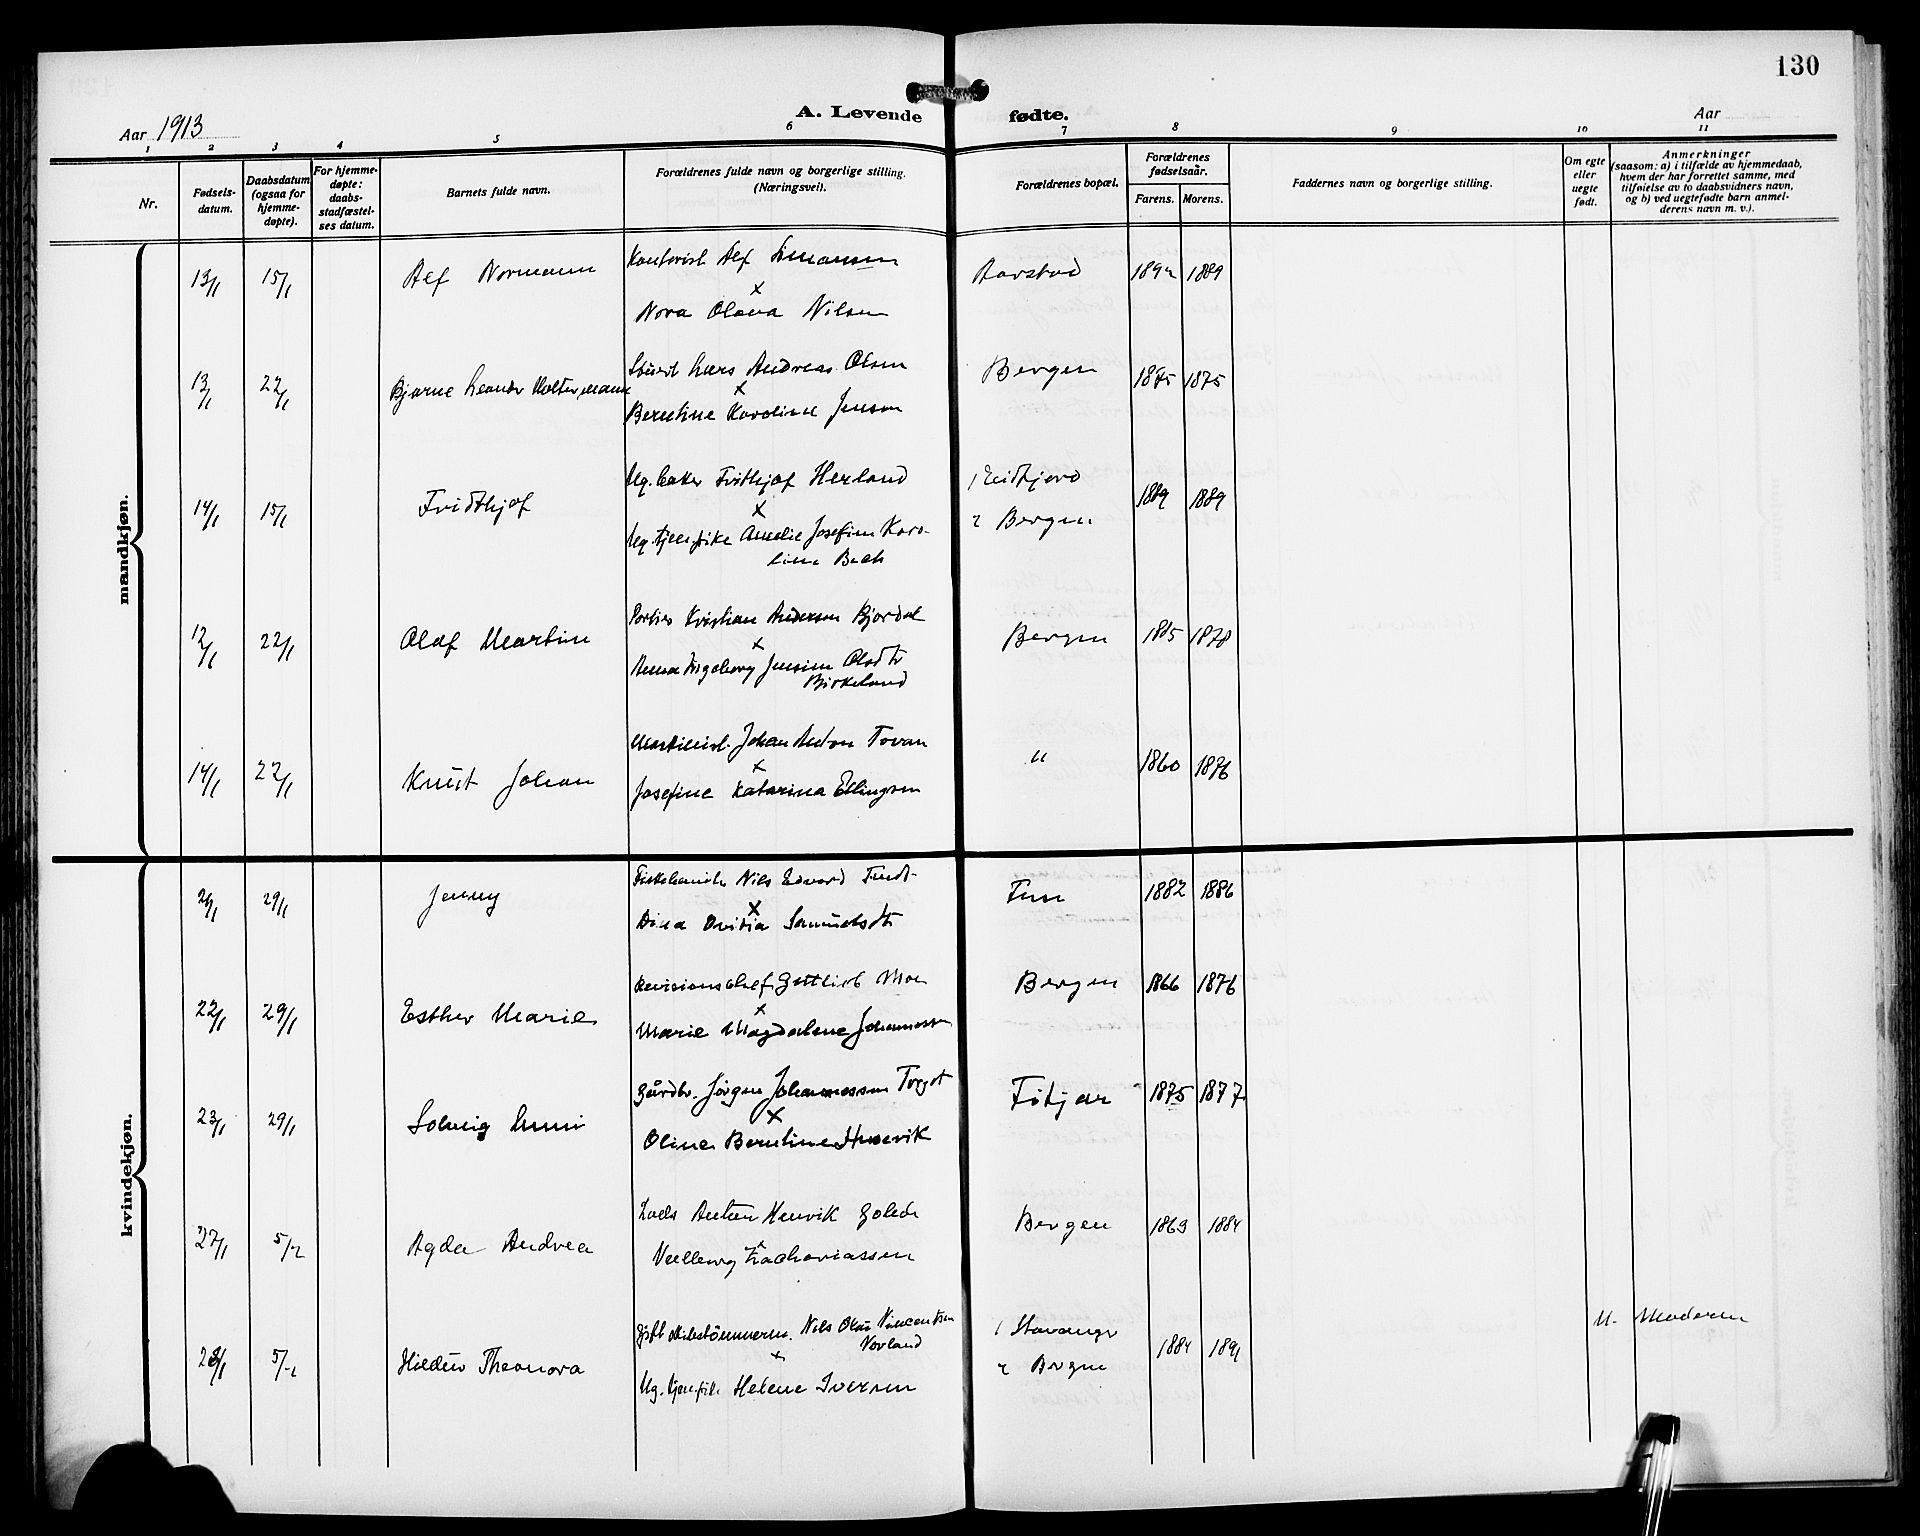 130
Aar 1913
A. Levende fødte.
Aar
1 2 3 4 5 6 7 8 9 10 11
Nr.
Fødsels-
datum.
Daabsdatum
(ogsaa for
hjemme-
døpte).
For hjemme-
døpte:
daabs-
stadfæstel-
ses datum.
Barnets fulde navn.
Forældrenes fulde navn og borgerlige stilling.
(Næringsvei).
Forældrenes bopæl.
Forældrenes
fødselsaar.
Farens. Morens.
Faddernes navn og borgerlige stilling.
Om egte
eller
uegte
født.
Anmerkninger
(saasom: a) i tilfælde av hjemmedaab,
hvem der har forrettet samme, med
tilføielse av to daabsvidners navn,
og b) ved uegtefødte barn anmel-
derens navn m. v.).
mandkjøn.
13/1 15/1 Alf Normann Kontorist Alf Simonsen Aarstad 1892 1889
x
Nora Olava Nilsen
13/1 22/1 Bjarne Leander Lars Andreas Olsen Bergen 1875 1875
x
Berntine Karoline Jensen
14/1 15/1 Fridthjof Ug. Fridthjof Herland 1 Eidfjord 1889 1889
x
Ug. tjen.pike Amelie Josefine Karo- 2 Bergen
line Bech
12/1 22/1 Olaf Martin Portier Kristian Andersen Bjordal Bergen 1885 1878
x
Anna Ingeborg Jensine Olsdtr
Birkeland
14/1 22/1 Knut Johan Maskinist. Johan Anton Tovan " 1860 1876
x
Josefine Katarina Ellingsen
kvindekjøn.
29/1 Jenny Nils Edvard 1882 1886
x
Dina Ovidia Samuelsdtr
22/1 29/1 Esther Marie Revisionschef Gottlieb Moe Bergen 1866 1876
x
Marie Magdalene Johannessen
23/1 29/1 Solveig Gårdbr. Jørgen Johannessen Fitjar 1875 1877
x
Oline Berntine Husevik
27/1 5/2 Agda Andrea Lods Anton Henrik Bergen 1869 1884
x
Zachariassen
28/1 5/2 Hildur Theonora Nils Olai Vincentsen 1 Stavanger 1884 1891 U. Moderen
Norland
x
Ug. tjen.pike Helene Iversen 2 Bergen